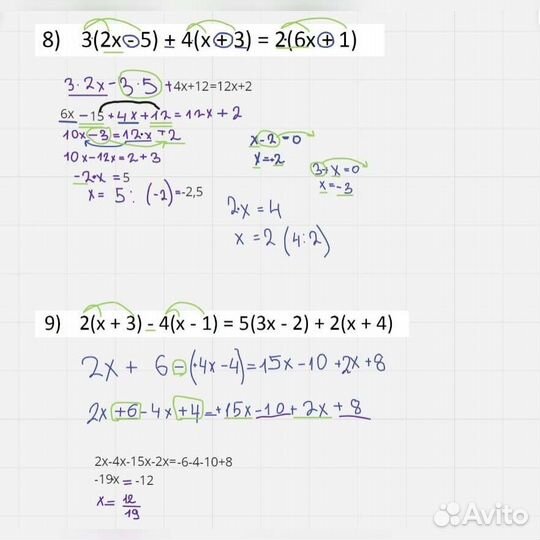 8) 3(2x - 5) + 4(x + 3) = 2(6x + 1)
3·2x - 3·5 + 4x+12=12x+2
6x - 15 + 4x + 12 = 12x + 2
10x - 3 = 12·x + 2
10x - 12x = 2 + 3
-2·x = 5
x = 5 : (-2) = -2,5
x - 2 = 0
x = 2
3 + x = 0
x = -3
2·x = 4
x = 2 (4:2)
9) 2(x + 3) - 4(x - 1) = 5(3x - 2) + 2(x + 4)
2x + 6 - (+4x - 4) = 15x - 10 + 2x + 8
2x + 6 - 4x + 4 = +15x - 10 + 2x + 8
2x-4x-15x-2x=-6-4-10+8
-19x = -12
x = 12/19
Avito